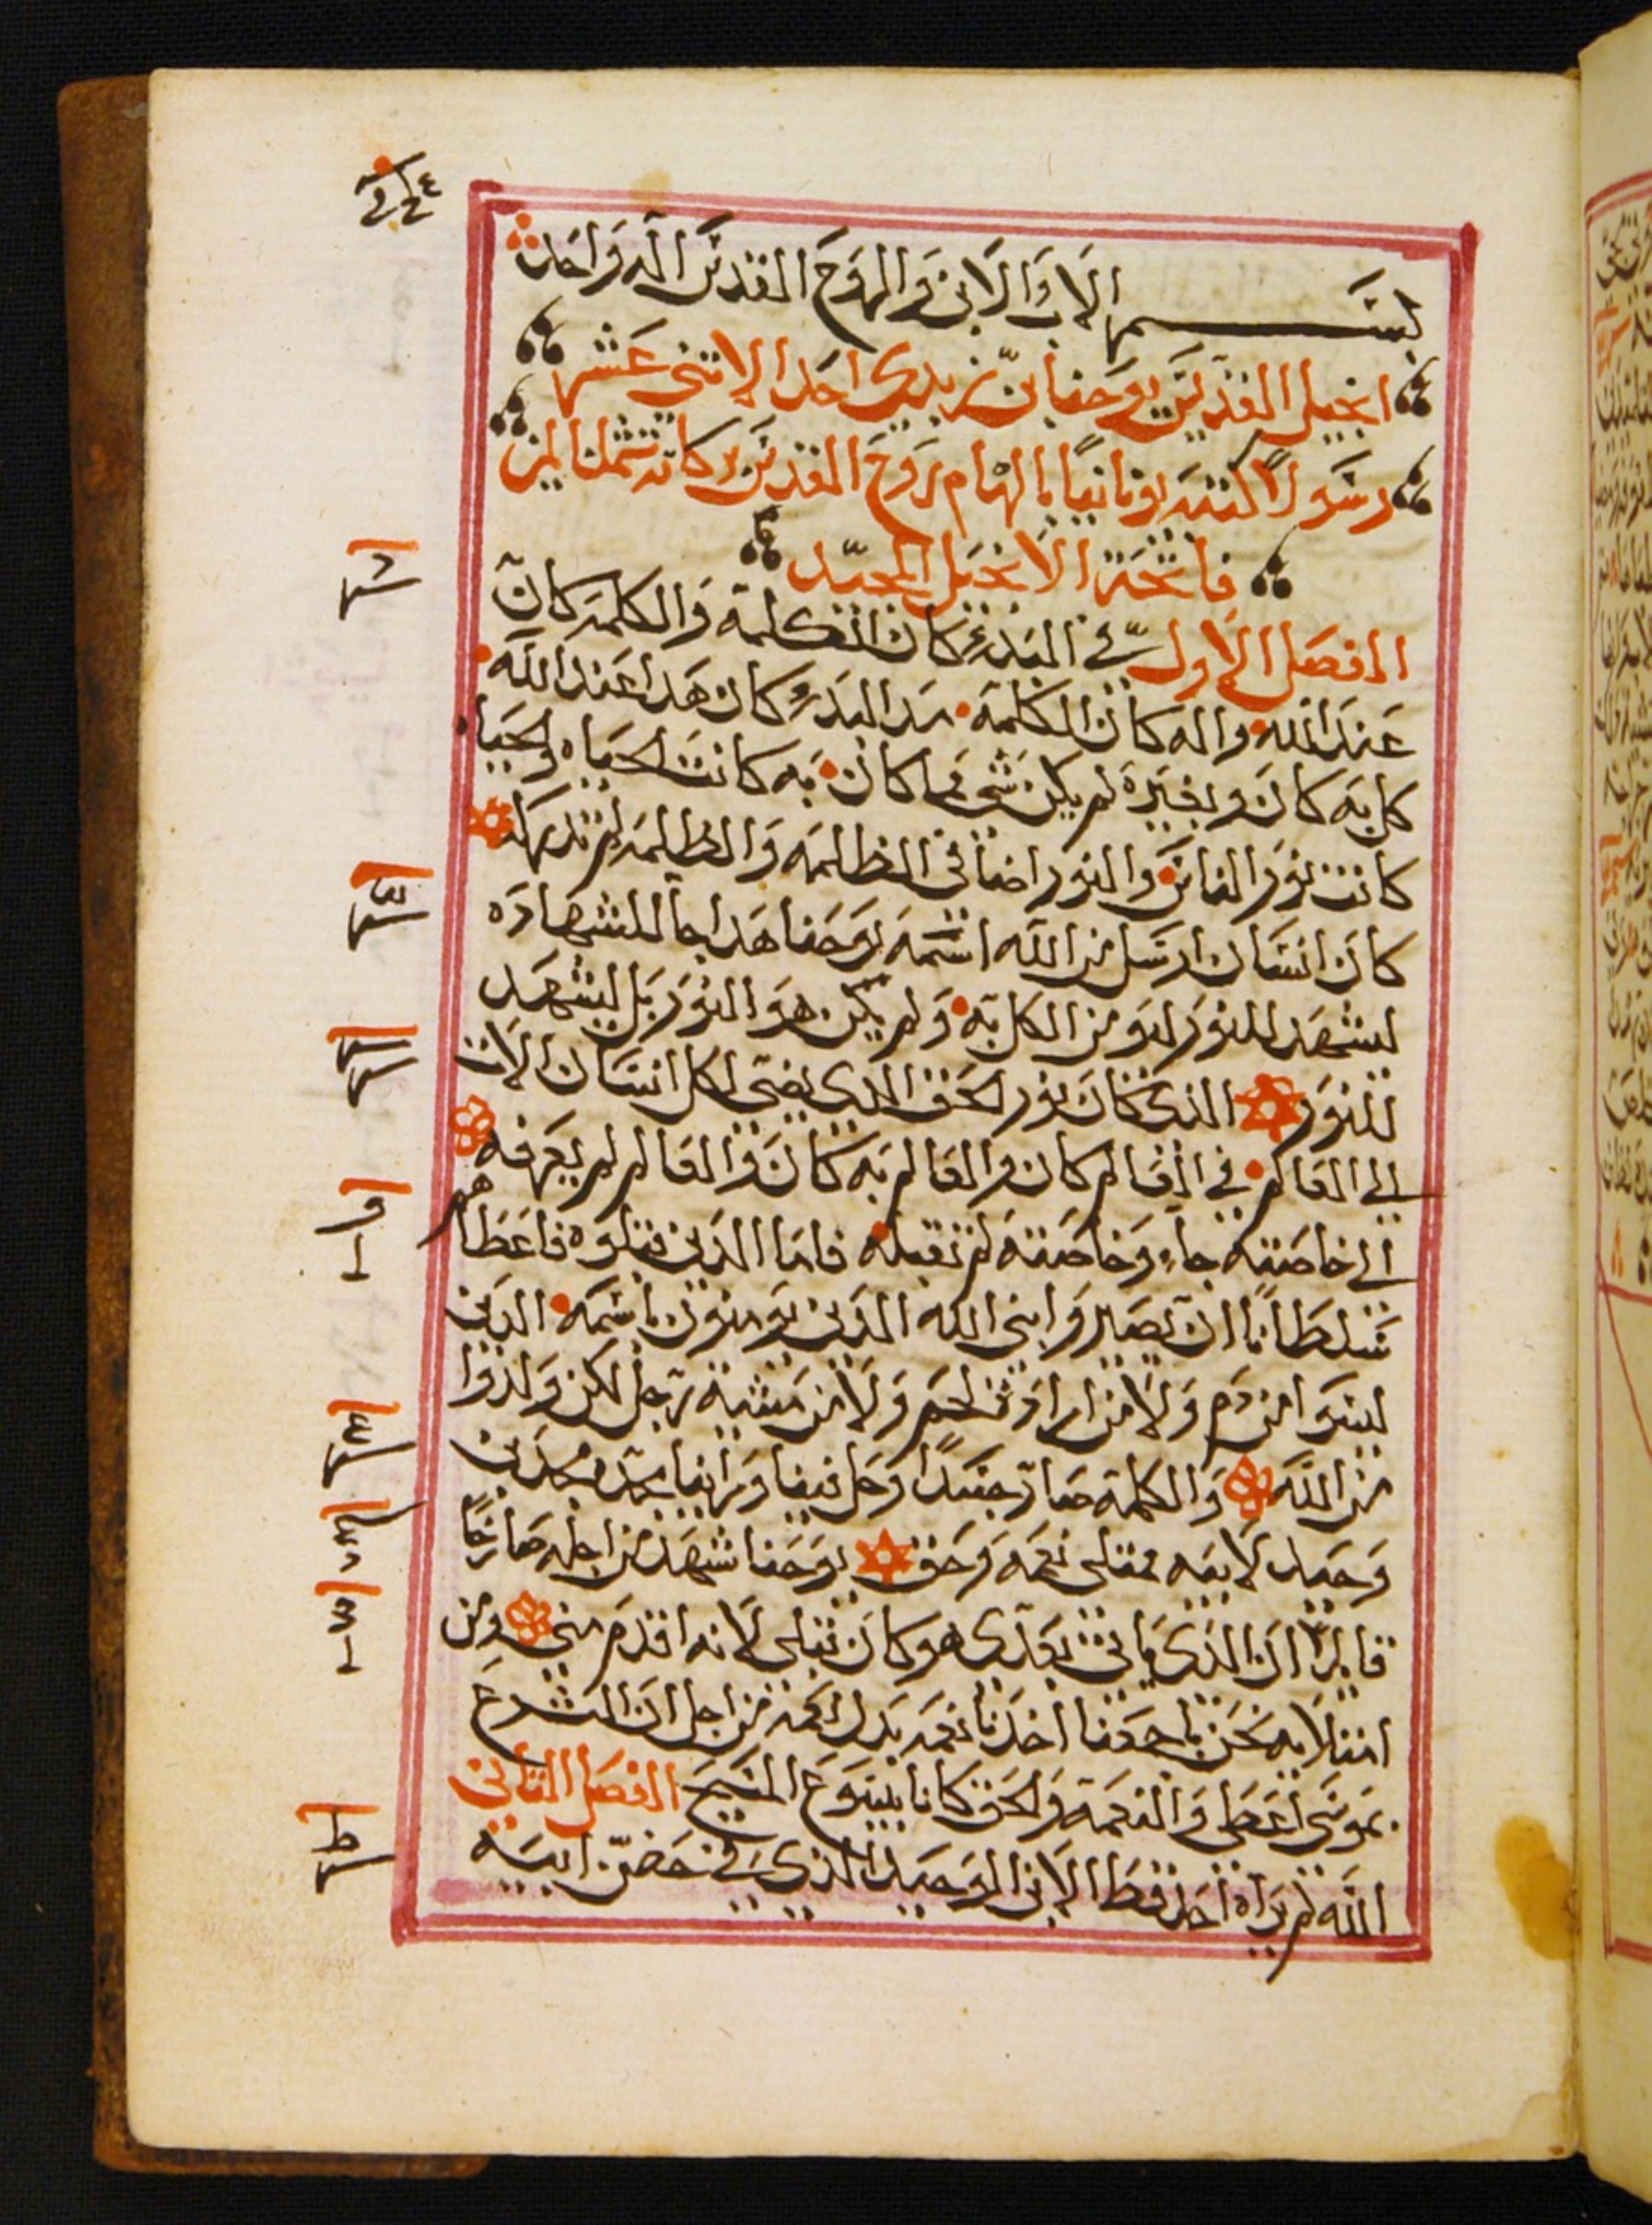 بسم الاب والابن والروح القدس اله واحد
انجيل القديس يوحنا بن زبدي احد الاثني عشر
رسولا كتبه يونانيا بالهام روح القدس بركاته تشملنا امين
فاتحة الانجيل المجيد
الفصل الاول في البدئ كان الكلمة والكلمة كان
عند الله واله كان الكلمة هدا البدو كان هدا عند الله
كل به كان وبغيره لم يكن شي مما كان به كانت الحياه والحياه
كانت نور الناس والنور اضا في الظلمه والظلمه لم تدركه
كان انسان ارسل من الله اسمه يوحنا هدا جا للشهاده
ليشهد للنور ليومن الكل به ولم يكن هو النور بل ليشهد
للنور الذي كان نور الحق الذي يضي لكل انسان الات
الي العالم في العالم كان والعالم به كان والعالم لم يعرفه
الي خاصته جاء وخاصته لم تقبله فاما الدين قبلوه فاعطاهم
سلطانا ان يصيروا بني الله الدين يومنون باسمه الدين
ليسوا من دم ولا من ارادة لحم ولا من مشية رجل لكن ولدوا
من الله والكلمة صار جسدا وحل فينا وراينا مجده مجد بن
وحيد لابيه ممتلي نعمه وحق يوحنا شهد من اجله صارخا
قايلا ان الذي ياتي بعدي هو كان قبلي لانه اقدم مني ومن
امتلايه نحن باجمعنا اخدنا نعمه بدل نعمه من اجل ان الشرع
بموسي اعطي والنعمة والحق كانا بيسوع المسيح الفصل الثاني
الله لم يراه احد قط الابن الوحيد الذي في حضن ابيه